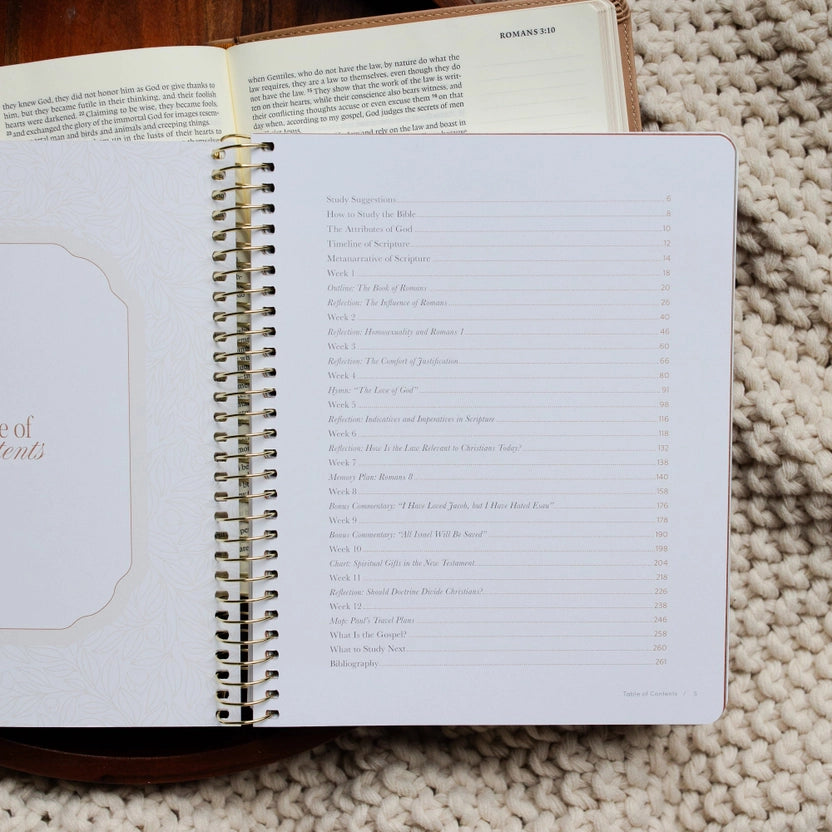 ROMANS 3:10
they knew God, they did not honor him as God or give thanks to
him, but they became futile in their thinking, and their foolish
hearts were darkened. 22 Claiming to be wise, they became fools,
23 and exchanged the glory of the immortal God for images resem-
mortal man and birds and animals and creeping things.
in the lusts of their hearts to
when Gentiles, who do not have the law, by nature do what the
law requires, they are a law to themselves, even though they do
not have the law. 15 They show that the work of the law is writ-
ten on their hearts, while their conscience also bears witness, and
their conflicting thoughts accuse or even excuse them 16 on that
day when, according to my gospel, God judges the secrets of men
and rely on the law and boast in
e of
tents
Study Suggestions 6
How to Study the Bible 8
The Attributes of God 10
Timeline of Scripture 12
Metanarrative of Scripture 14
Week 1 18
Outline: The Book of Romans 20
Reflection: The Influence of Romans 26
Week 2 40
Reflection: Homosexuality and Romans 1 46
Week 3 60
Reflection: The Comfort of Justification 66
Week 4 80
Hymn: “The Love of God” 91
Week 5 98
Reflection: Indicatives and Imperatives in Scripture 116
Week 6 118
Reflection: How Is the Law Relevant to Christians Today? 132
Week 7 138
Memory Plan: Romans 8 140
Week 8 158
Bonus Commentary: “I Have Loved Jacob, but I Have Hated Esau” 176
Week 9 178
Bonus Commentary: “All Israel Will Be Saved” 190
Week 10 198
Chart: Spiritual Gifts in the New Testament 204
Week 11 218
Reflection: Should Doctrine Divide Christians? 226
Week 12 238
Map: Paul's Travel Plans 246
What Is the Gospel? 258
What to Study Next 260
Bibliography 261
Table of Contents / 5